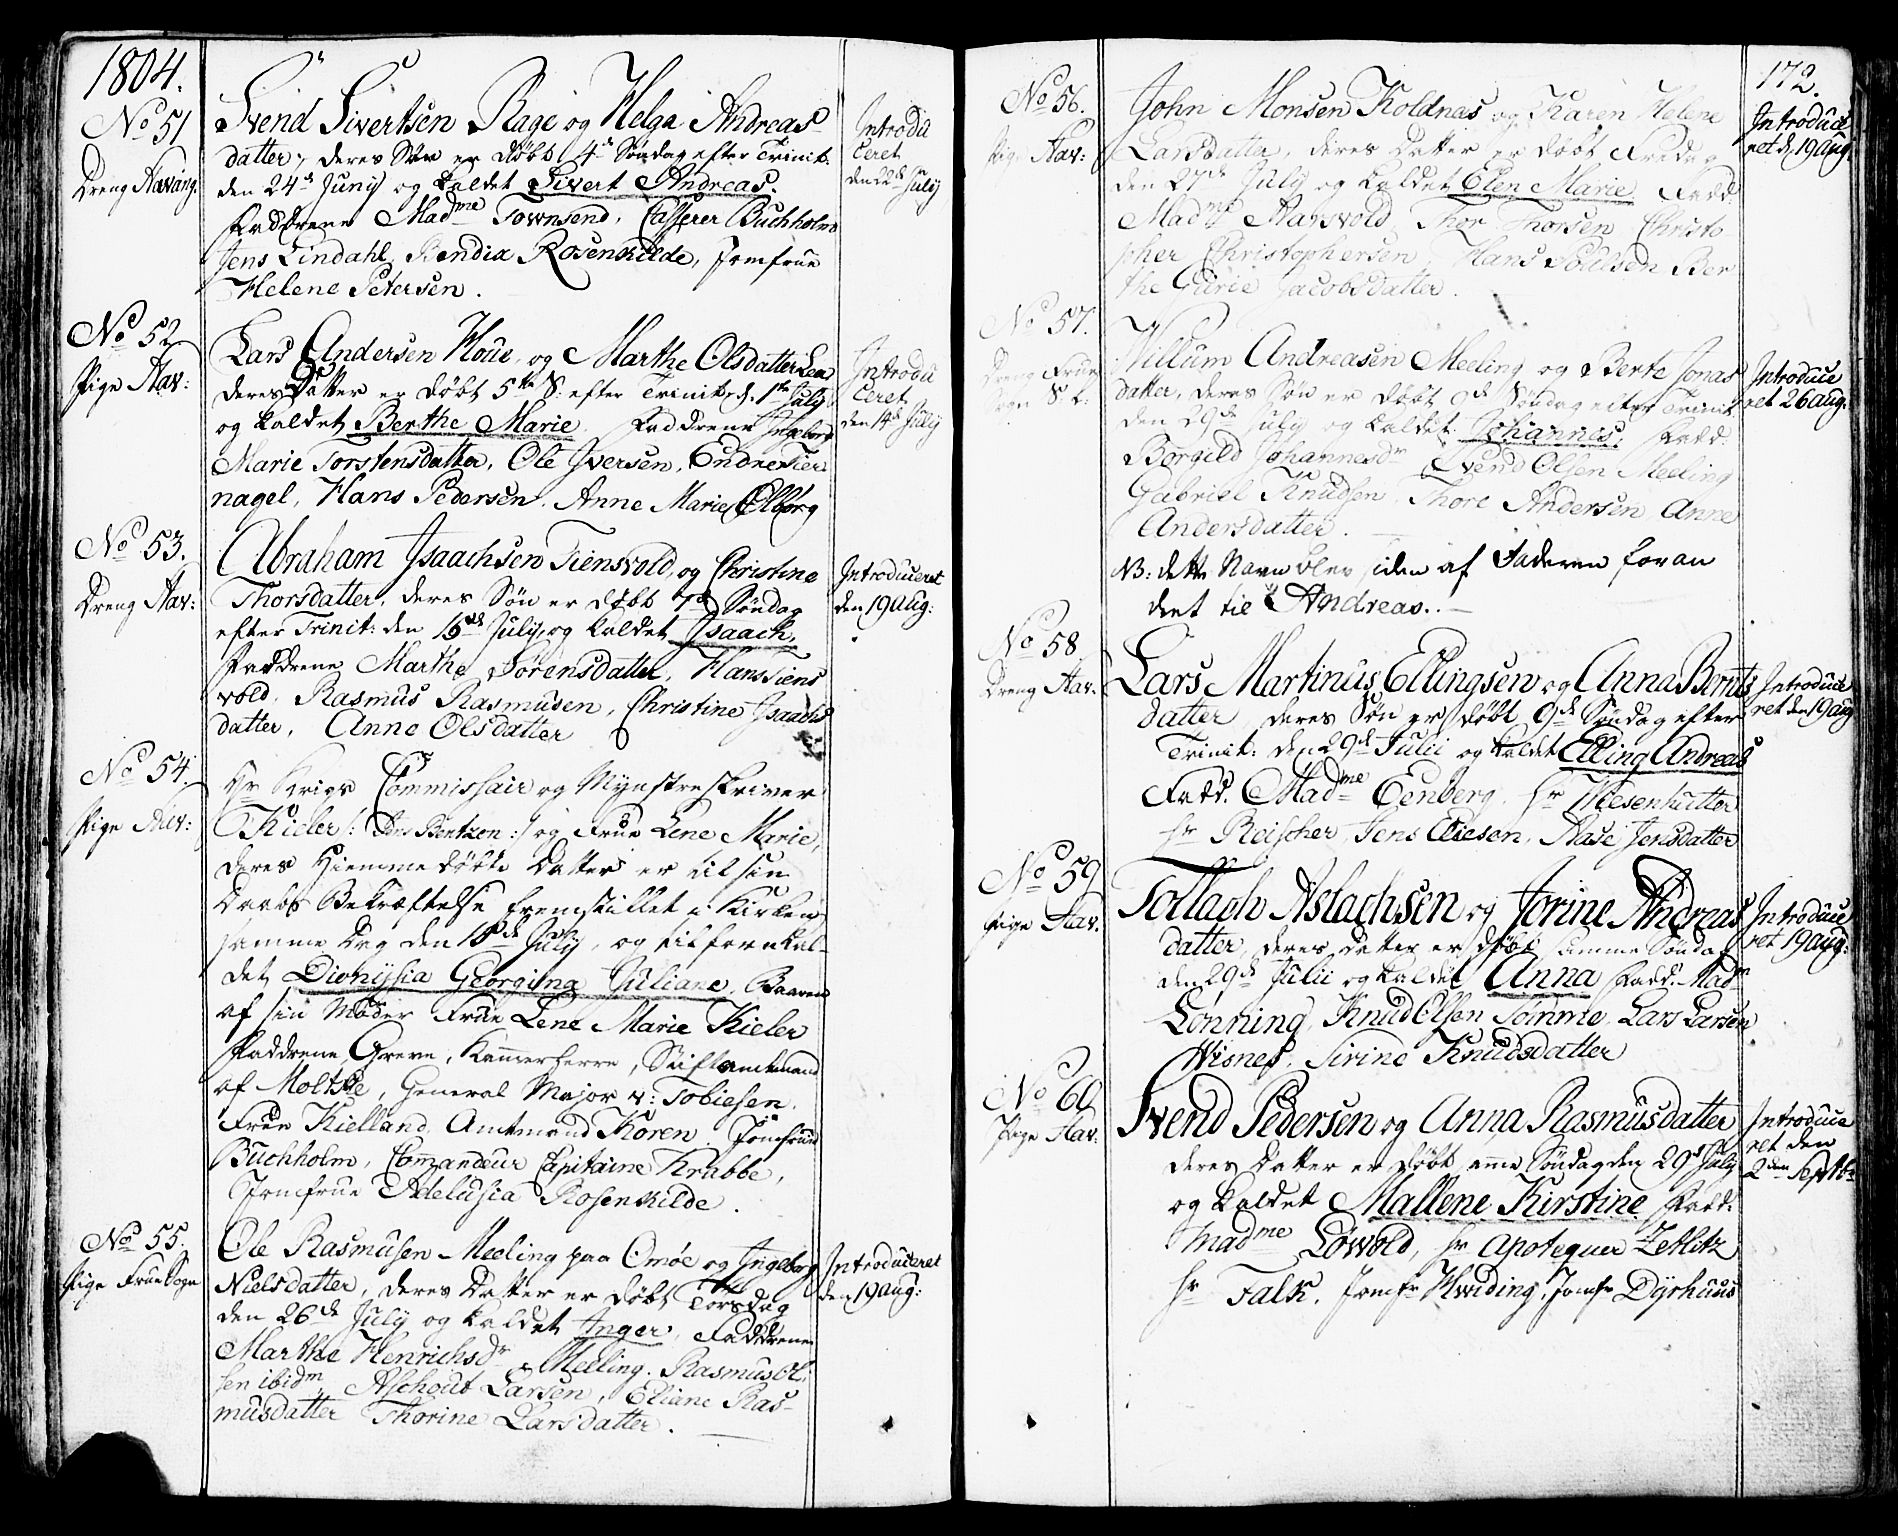 1804.
No 51
Dreng Stavang
Svend Sivertsen Rage og Helga Andreas
datter, deres Søn er døbt 4de Søndag efter Trinit:
den 24de Juny og kaldet Sivert Andreas.
Faddrene Madme Townsend, Casserer Buchholm
Jens Lindahl, Bendix Rosenkilde, Jomfrue
Helene Petersen.
Introdu
ceret
den 22de July
No 52
Pige Stav:
Lars Andersen Houe, og Marthe Olsdatter Lea
deres Datter er døbt 5te S: efter Trinit: d. 1te July
og kaldet Berthe Marie. Faddrene Ingeborg
Marie Torstensdatter, Ole Iversen, Endre Tier
nagel, Hans Pedersen, Anne Marie Elborg
Introdu
ceret
den 14de July
No 53.
Dreng Stav:
Abraham Isaachsen Tiensvold, og Christine
Thorsdatter, deres Søn er døbt 7de Søndag
efter Trinit: den 15de July, og kaldet Isaach.
Faddrene Marthe Sørensdatter, Hans Tiens
vold, Rasmus Rasmusen, Christine Isaachs
datter, Anne Olsdatter
Introduceret
den 19 Aug:
No 54.
Pige Stav:
Hr Krigs Commissair og Mynsterskriver
Kieler /: Jens Bentzon :/ og Frue Lene Marie,
deres Hiemmedøbte Datter er til sin
Daabs Bekræftelse fremstillet i Kirken
samme Dag den 15de July, og tilforn kal-
det Dionysia Georgina Juliane, Baaren
af sin Moder Frue Lene Marie Kieler
Faddrene Greve, Kammerherre, Stiftamtmand
af Moltke, General Major v: Tobiesen,
Frue Kielland, Amtmand Koren, Jomfrue
Buchholm, Commandeur Capitaine Krabbe,
Jomfrue Adelusia Rosenkilde.
No 55.
Pige Frue Sogn
Ole Rasmusen Meeling paa Omøe og Ingeborg
Nielsdatter, deres Datter er døbt Torsdag
den 26de July og kaldet Inger, Faddrene
Marthe Henrichsdr Meeling, Rasmus Ol:
sen ibidm, Aschout Larsen, Eliane Ras-
musdatter Thorine Larsdatter.
Introduceret
den 19 Aug:
172.
No 56.
Pige Stav:
John Monsen Holdnas og Karen Helene
Larsdatter, deres Datter er døbt Fredag
den 27de July og kaldet Elen Marie Fadd:
Madme Aarsvold, Thor Thorsen Christo-
pher Christophersen, Hans Poulsen Ber
the Gurie Jacobsdatter.
Introduce
ret d. 19 Aug:
No 57.
Dreng Frue
Sogn
Willum Andreasen Meeling og Berte Jonas
datter, deres Søn er døbt 9de Søndag efter Trinit
den 29de July og kaldet Johannes. Fadd:
Borgild Johannesdr Svend Olsen Meeling
Gabriel Knudsen, Thore Andersen Anne
Andersdatter.
NB: dette Navn blev siden af Faderen foran
dret til Andreas.
Introduce
ret 26 Aug.
No 58
Dreng Stav.
Lars Martinus Ellingsen og Anna Bernts
datter deres Søn er døbt 9de Søndag efter
Trinit: den 29de Julii og kaldet Elling Andreas
Fadd. Madme Eenberg, Hr Wiesenhutter
Hr Reischer, Jens Eliesen, Aase Jensdatter
Introduce
ret den 19 Aug
No 59
Pige Stav.
Tollagh Aslachsen og Jorine Andreas
datter, deres Datter er døbt samme Søndag
den 29de Julii og kaldet Anna Fadd. Madm
Lønning, Knud Olsen Tomme, Lars Larsen
Wisnes, Sirine Knudsdatter
Introduce
ret 19 Aug:
No 60
Pige Stav:
Svend Pedersen og Anna Rasmusdatter
deres Datter er døbt Søndag den 29de July
og kaldet Mallene Kirstine Fadd:
Madme Løwold, Hr Apotequer Zetlitz
Hr Falk, Jomfr Hwiding, Jomfr Dyrhuus
Introduce
ret den
2den Septbr